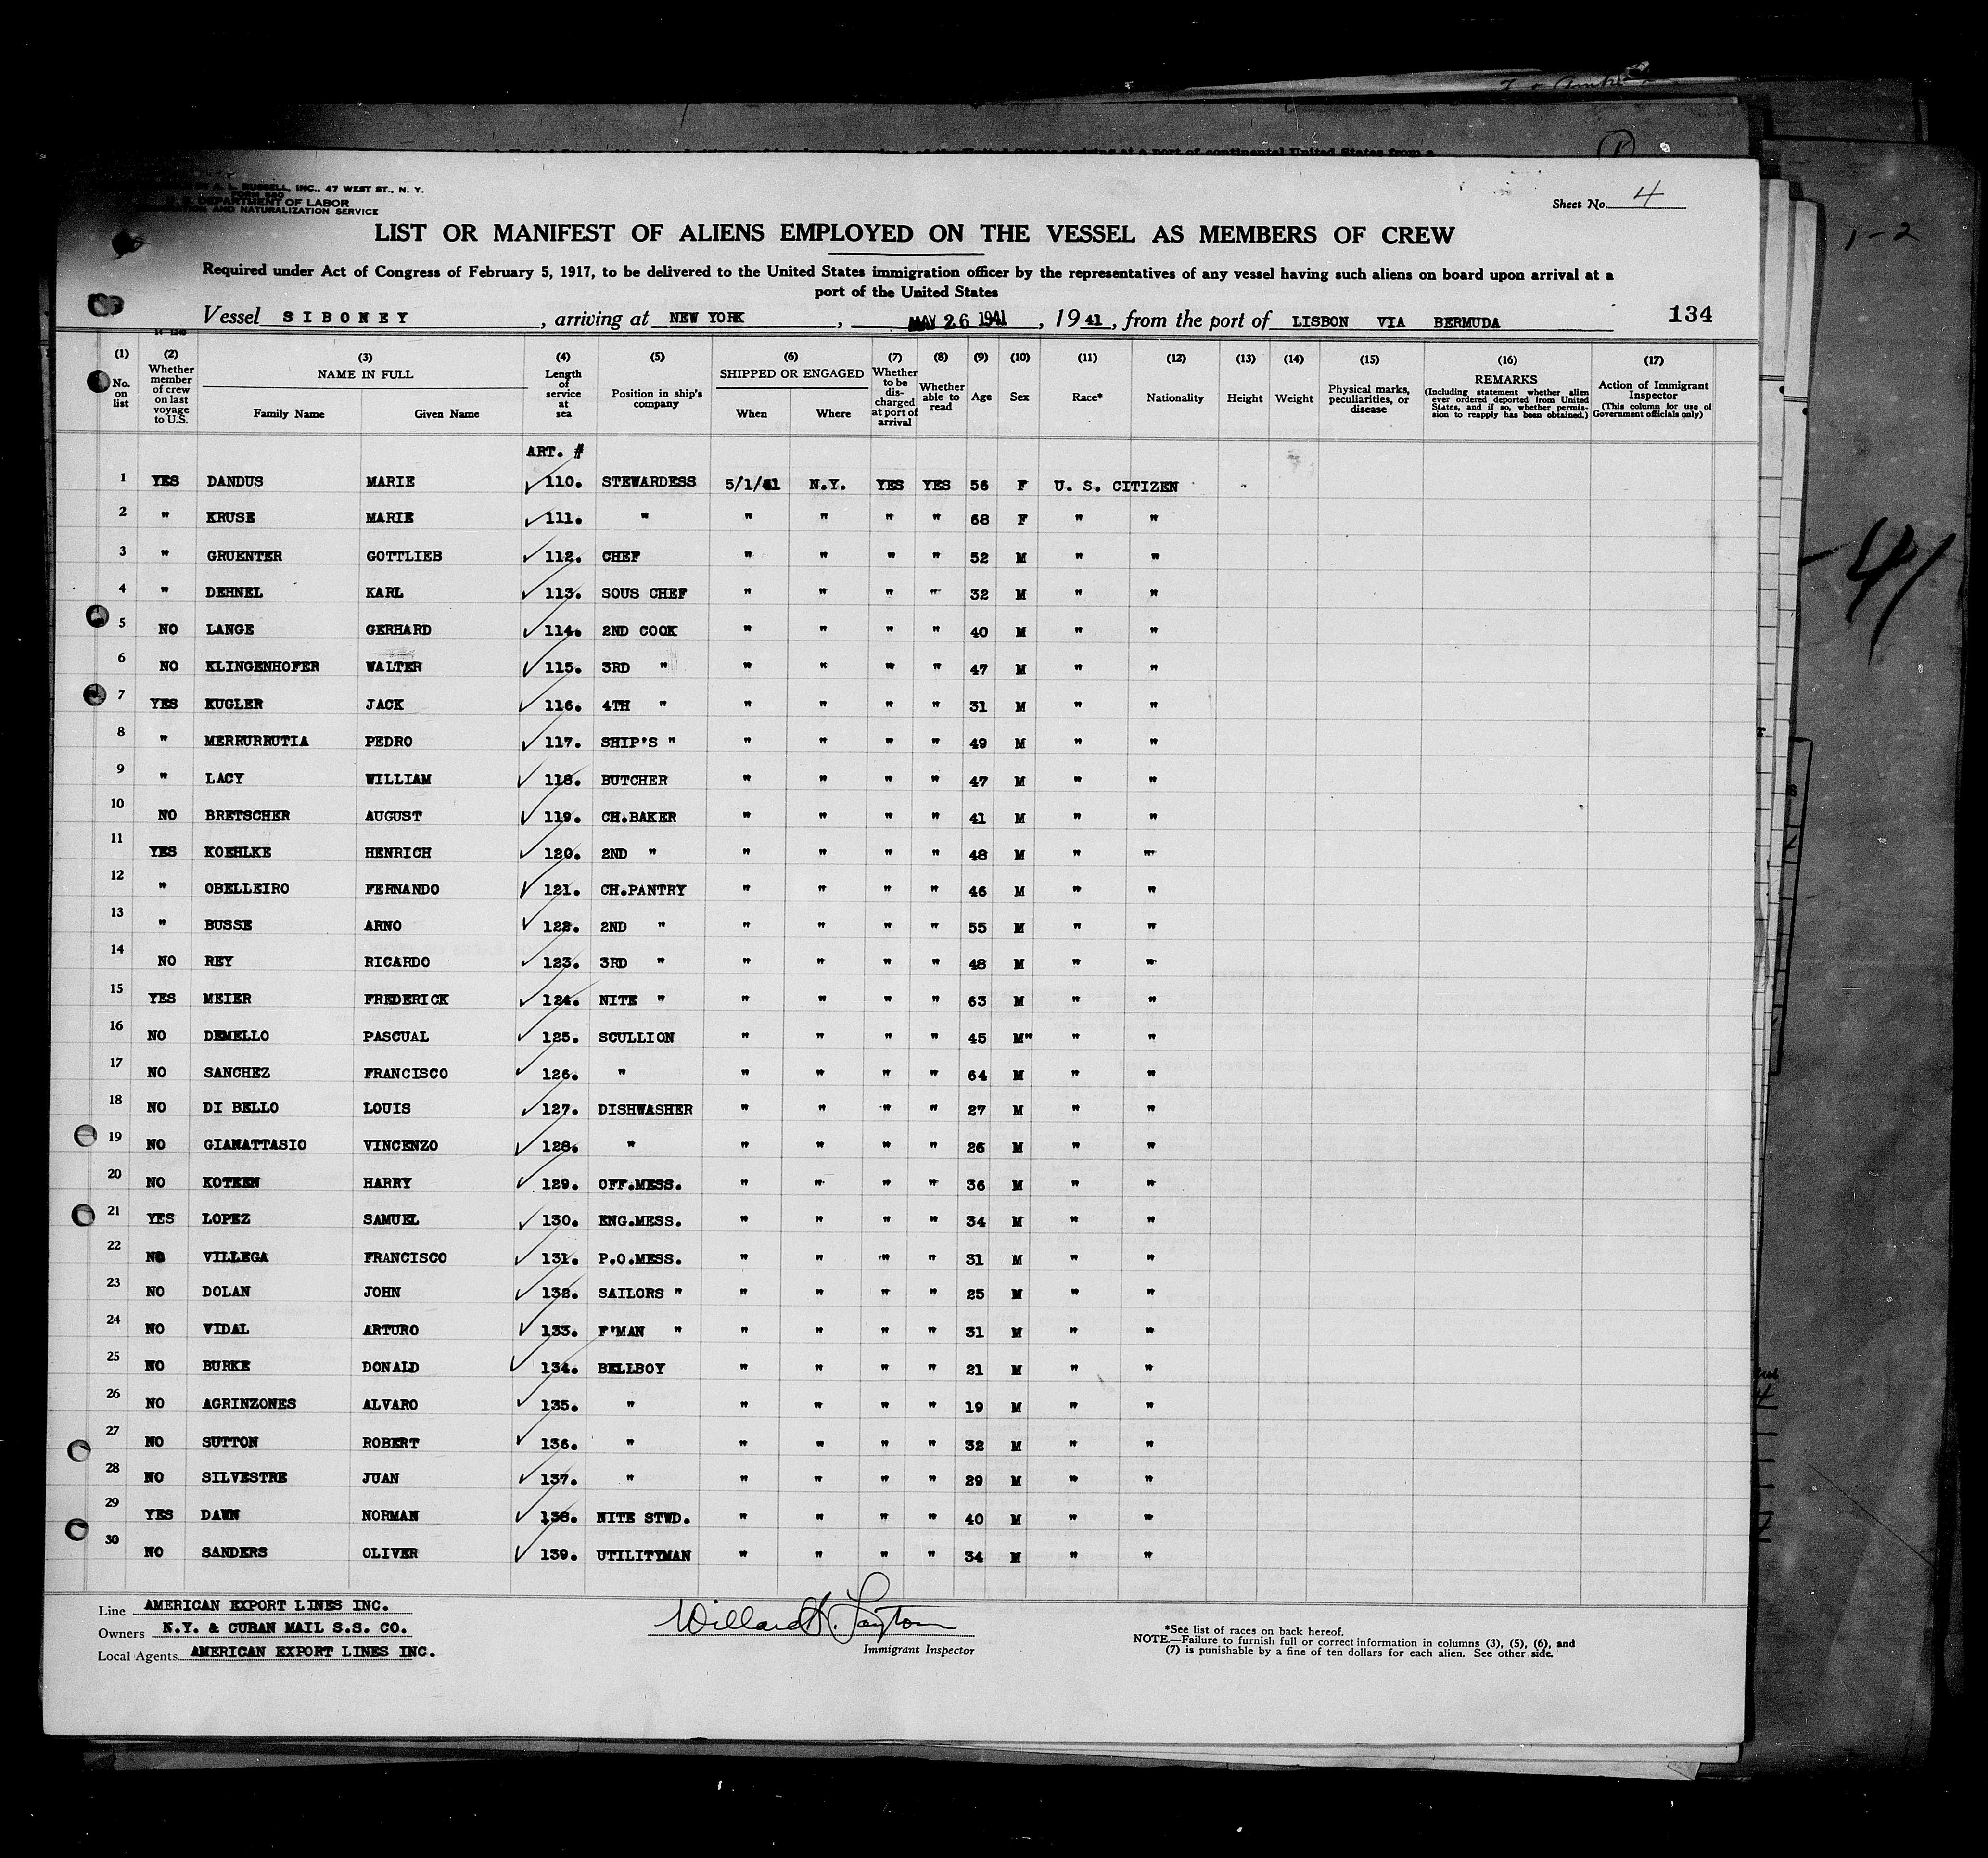 A. L. RUSSELL, INC., 47 WEST ST., N. Y.
FORM 680
U. S. DEPARTMENT OF LABOR
AND NATURALIZATION SERVICE
Sheet No. 4
1-2
LIST OR MANIFEST OF ALIENS EMPLOYED ON THE VESSEL AS MEMBERS OF CREW
Required under Act of Congress of February 5, 1917, to be delivered to the United States immigration officer by the representatives of any vessel having such aliens on board upon arrival at a
port of the United States
Vessel SIBONEY, arriving at NEW YORK, MAY 26 1941, 1941, from the port of LISBON VIA BERMUDA 134
(1) (2) (3) (4) (5) (6) (7) (8) (9) (10) (11) (12) (13) (14) (15) (16) (17)
No. on list Whether member of crew on last voyage to U.S. NAME IN FULL Family Name Given Name Length of service at sea Position in ship's company SHIPPED OR ENGAGED When Where Whether to be discharged at port of arrival Whether able to read Age Sex Race* Nationality Height Weight Physical marks, peculiarities, or disease REMARKS (Including statement whether alien ever ordered deported from United States, and if so, whether permission to reapply has been obtained.) Action of Immigrant Inspector (This column for use of Government officials only)
ART. #
1 YES DANDUS MARIE 110. STEWARDESS 5/1/41 N.Y. YES YES 56 F U. S. CITIZEN
2 " KRUSE MARIE 111. " " " " " 68 F " "
3 " GRUENTER GOTTLIEB 112. CHEF " " " " 52 M " "
4 " DEHNEL KARL 113. SOUS CHEF " " " " 32 M " "
5 NO LANGE GERHARD 114. 2ND COOK " " " " 40 M " "
6 NO KLINGENHOFER WALTER 115. 3RD " " " " " 47 M " "
7 YES KUGLER JACK 116. 4TH " " " " " 31 M " "
8 " MERRURRUTIA PEDRO 117. SHIP'S " " " " " 49 M " "
9 " LACY WILLIAM 118. BUTCHER " " " " 47 M " "
10 NO BRETSCHER AUGUST 119. CH.BAKER " " " " 41 M " "
11 YES KOEHLKE HENRICH 120. 2ND " " " " " 48 M " "
12 " OBELLEIRO FERNANDO 121. CH.PANTRY " " " " 46 M " "
13 " BUSSE ARNO 122. 2ND " " " " " 55 M " "
14 NO REY RICARDO 123. 3RD " " " " " 48 M " "
15 YES MEIER FREDERICK 124. NITE " " " " " 63 M " "
16 NO DEMELLO PASCUAL 125. SCULLION " " " " 45 M" " "
17 NO SANCHEZ FRANCISCO 126. " " " " " 64 M " "
18 NO DI BELLO LOUIS 127. DISHWASHER " " " " 27 M " "
19 NO GIANATTASIO VINCENZO 128. " " " " " 26 M " "
20 NO KOTEEN HARRY 129. OFF.MESS. " " " " 36 M " "
21 YES LOPEZ SAMUEL 130. ENG.MESS. " " " " 34 M " "
22 NO VILLEGA FRANCISCO 131. P.O.MESS. " " " " 31 M " "
23 NO DOLAN JOHN 132. SAILORS " " " " " 25 M " "
24 NO VIDAL ARTURO 133. F'MAN " " " " " 31 M " "
25 NO BURKE DONALD 134. BELLBOY " " " " 21 M " "
26 NO AGRINZONES ALVARO 135. " " " " " 19 M " "
27 NO SUTTON ROBERT 136. " " " " " 32 M " "
28 NO SILVESTRE JUAN 137. " " " " " 29 M " "
29 YES DAWN NORMAN 138. NITE STWD. " " " " 40 M " "
30 NO SANDERS OLIVER 139. UTILITYMAN " " " " 34 M " "
Line AMERICAN EXPORT LINES INC.
Owners N.Y. & CUBAN MAIL S.S. CO.
Local Agents AMERICAN EXPORT LINES INC.
Immigrant Inspector
*See list of races on back hereof.
NOTE.—Failure to furnish full or correct information in columns (3), (5), (6), and
(7) is punishable by a fine of ten dollars for each alien. See other side.